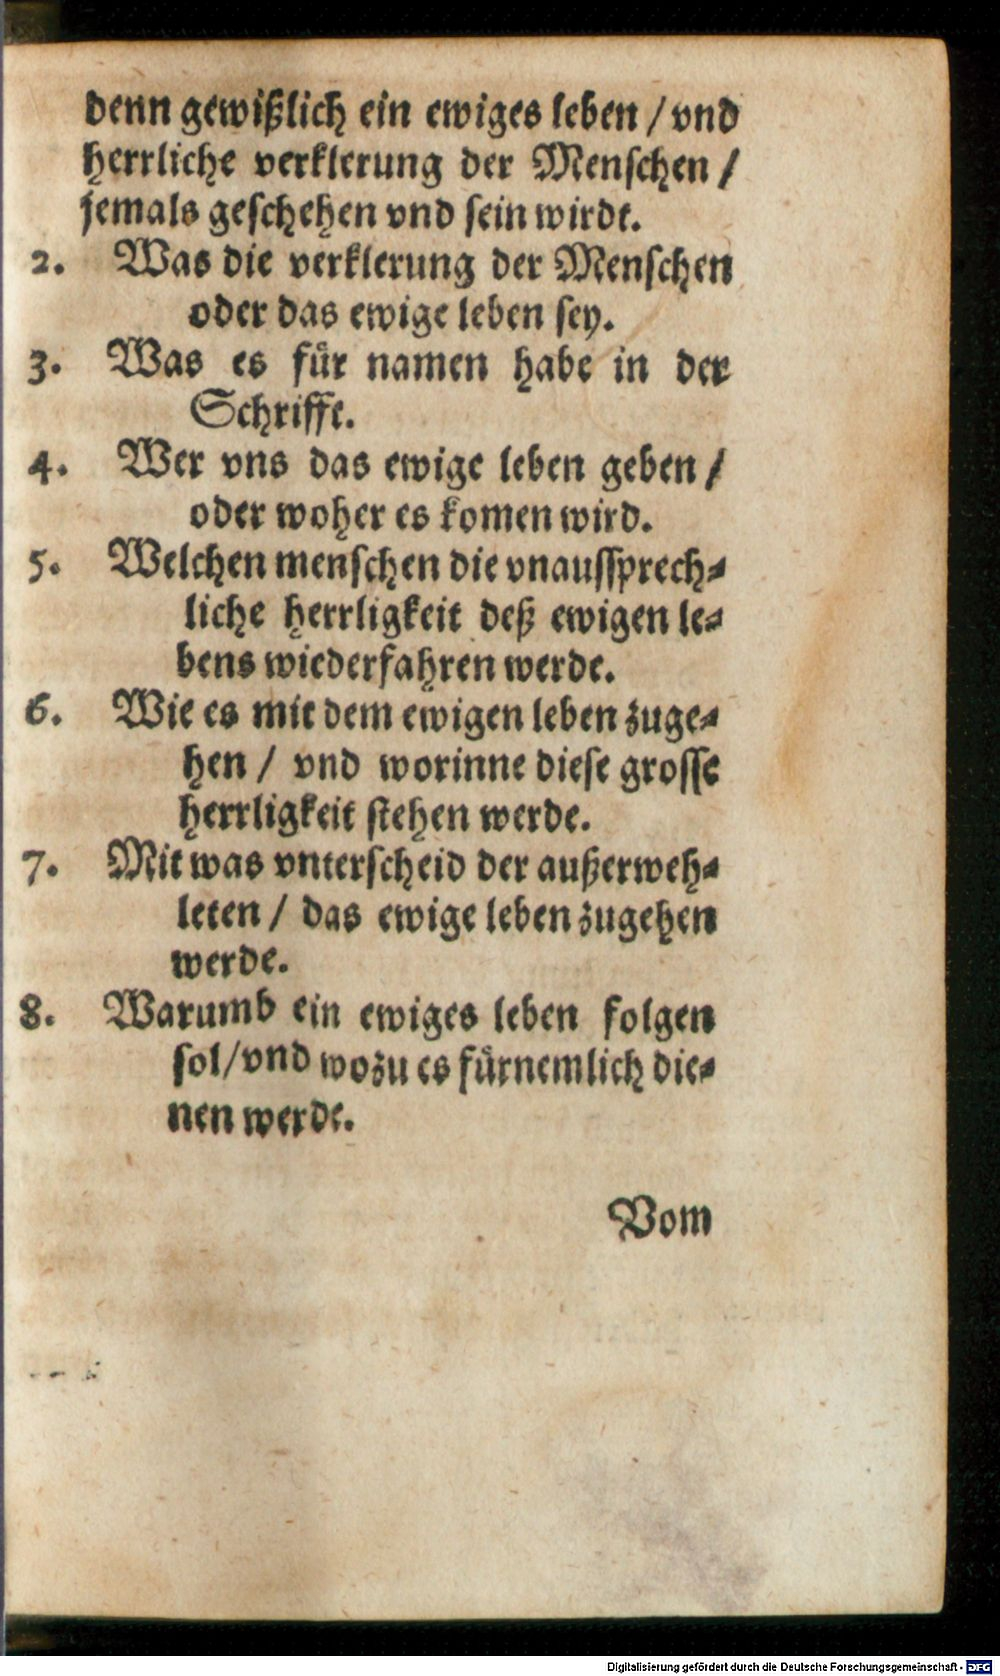 denn gewißlich ein ewiges leben / vnd
herrliche verklerung der Menschen /
jemals geschehen vnd sein wirdt.
2. Was die verklerung der Menschen
oder das ewige leben sey.
3. Was es für namen habe in der
Schrifft.
4. Wer vns das ewige leben geben /
oder woher es komen wird.
5. Welchen menschen die vnaussprech⸗
liche herrligkeit deß ewigen le⸗
bens wiederfahren werde.
6. Wie es mit dem ewigen leben zuge⸗
hen / vnd worinne diese grosse
herrligkeit stehen werde.
7. Mit was vnterscheid der außerweh⸗
leten / das ewige leben zugehen
werde.
8. Warumb ein ewiges leben folgen
sol / vnd wozu es fürnemlich die⸗
nen werde.
Vom
Digitalisierung gefördert durch die Deutsche Forschungsgemeinschaft - DFG